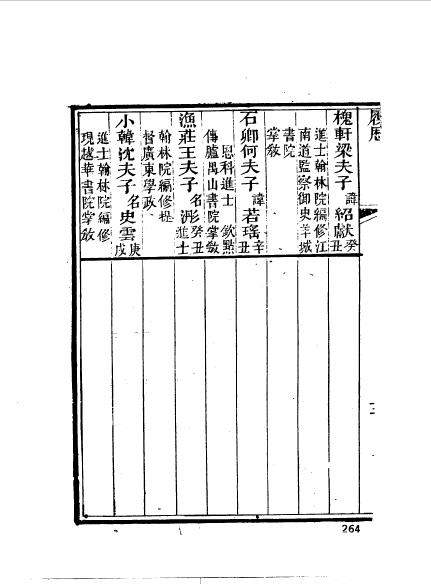 履歷
槐軒梁夫子 諱紹獻 癸丑
進士翰林院編修江
南道監察御史羊城
書院
掌教
石卿何夫子 諱若瑤 辛丑
恩科進士 欽點
傳臚禺山書院掌教
漁莊王夫子 名浵 癸丑進士
翰林院編修提
督廣東學政
小韓沈夫子 名史雲 庚戌
進士翰林院編修
現越華書院掌教
264